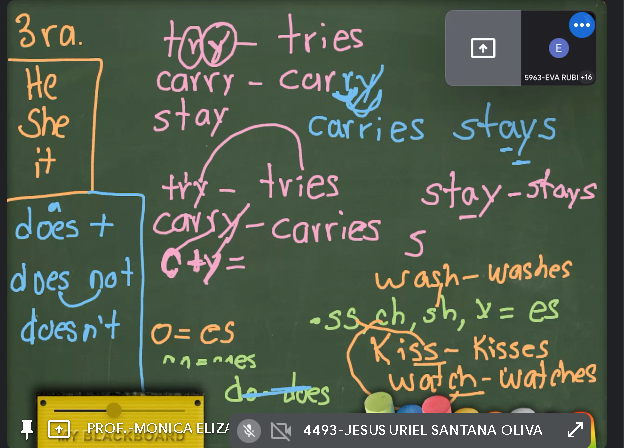 3ra.
He
She
it
does +
does not
doesn't
try - tries
carry - carry
stay
carries stays
try - tries
carry - carries
C+y =
stay - stays
s
wash - washes
ss ch, sh, x = es
Kiss - Kisses
watch - watches
o = es
do - does
E
5963-EVA RUBI +16
PROF.-MONICA ELIZA
BLACKBOARD
4493-JESUS URIEL SANTANA OLIVA